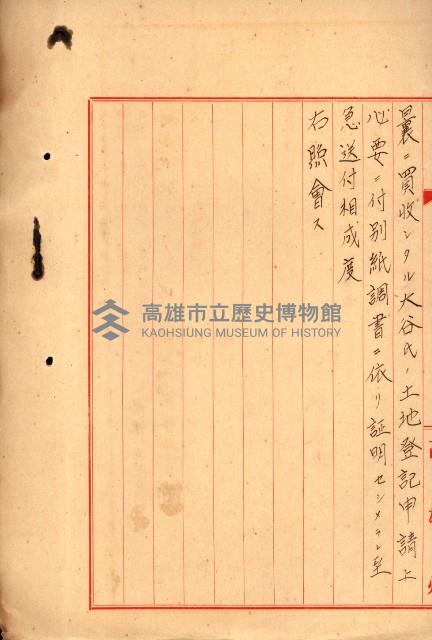 曩ニ買收シタル大谷氏ノ土地登記申請上
必要ニ付別紙調書ニ依リ証明セシメラレ至
急送付相成度
右照會ス
高雄市立歷史博物館
KAOHSIUNG MUSEUM OF HISTORY